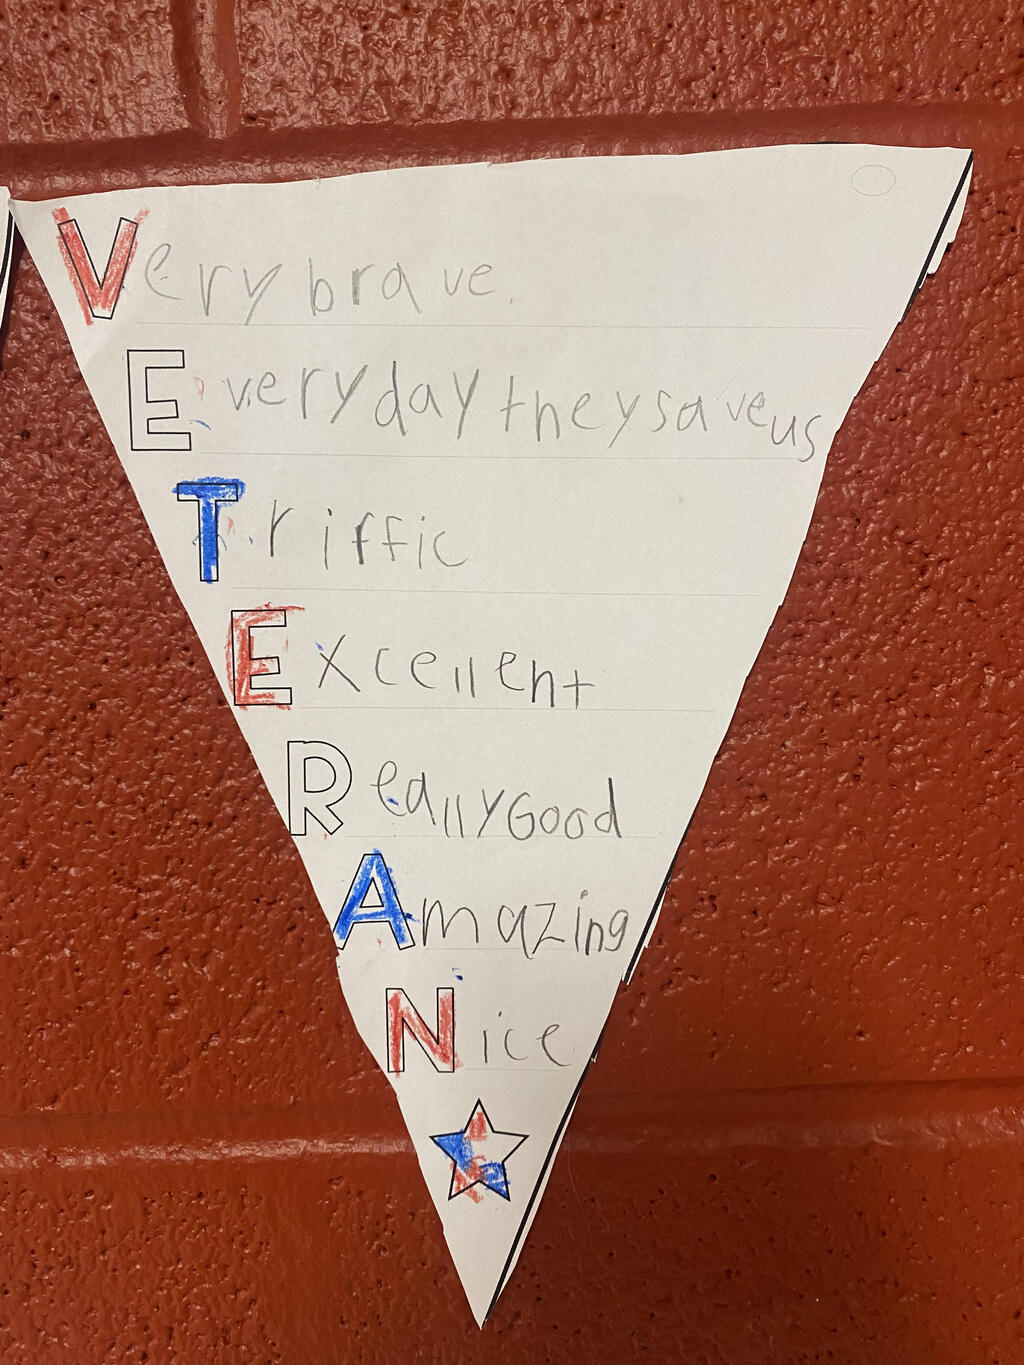 Very brave.
Everyday they save us
Triffic
Excellent
Really Good
Amazing
Nice